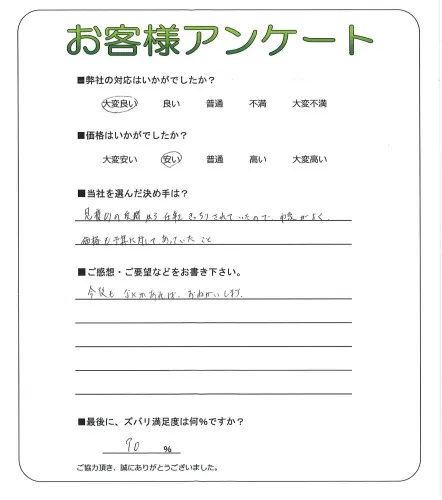 お客様アンケート
■弊社の対応はいかがでしたか？
大変良い 良い 普通 不満 大変不満
■価格はいかがでしたか？
大変安い 安い 普通 高い 大変高い
■当社を選んだ決め手は？
見積りの段階から仕事をきっちりされていたので、
価格が予算に対してあっていたこと
■ご感想・ご要望などをお書き下さい。
今後もなにかあれば、おねがいします。
■最後に、ズバリ満足度は何％ですか？
90 %
ご協力頂き、誠にありがとうございました。